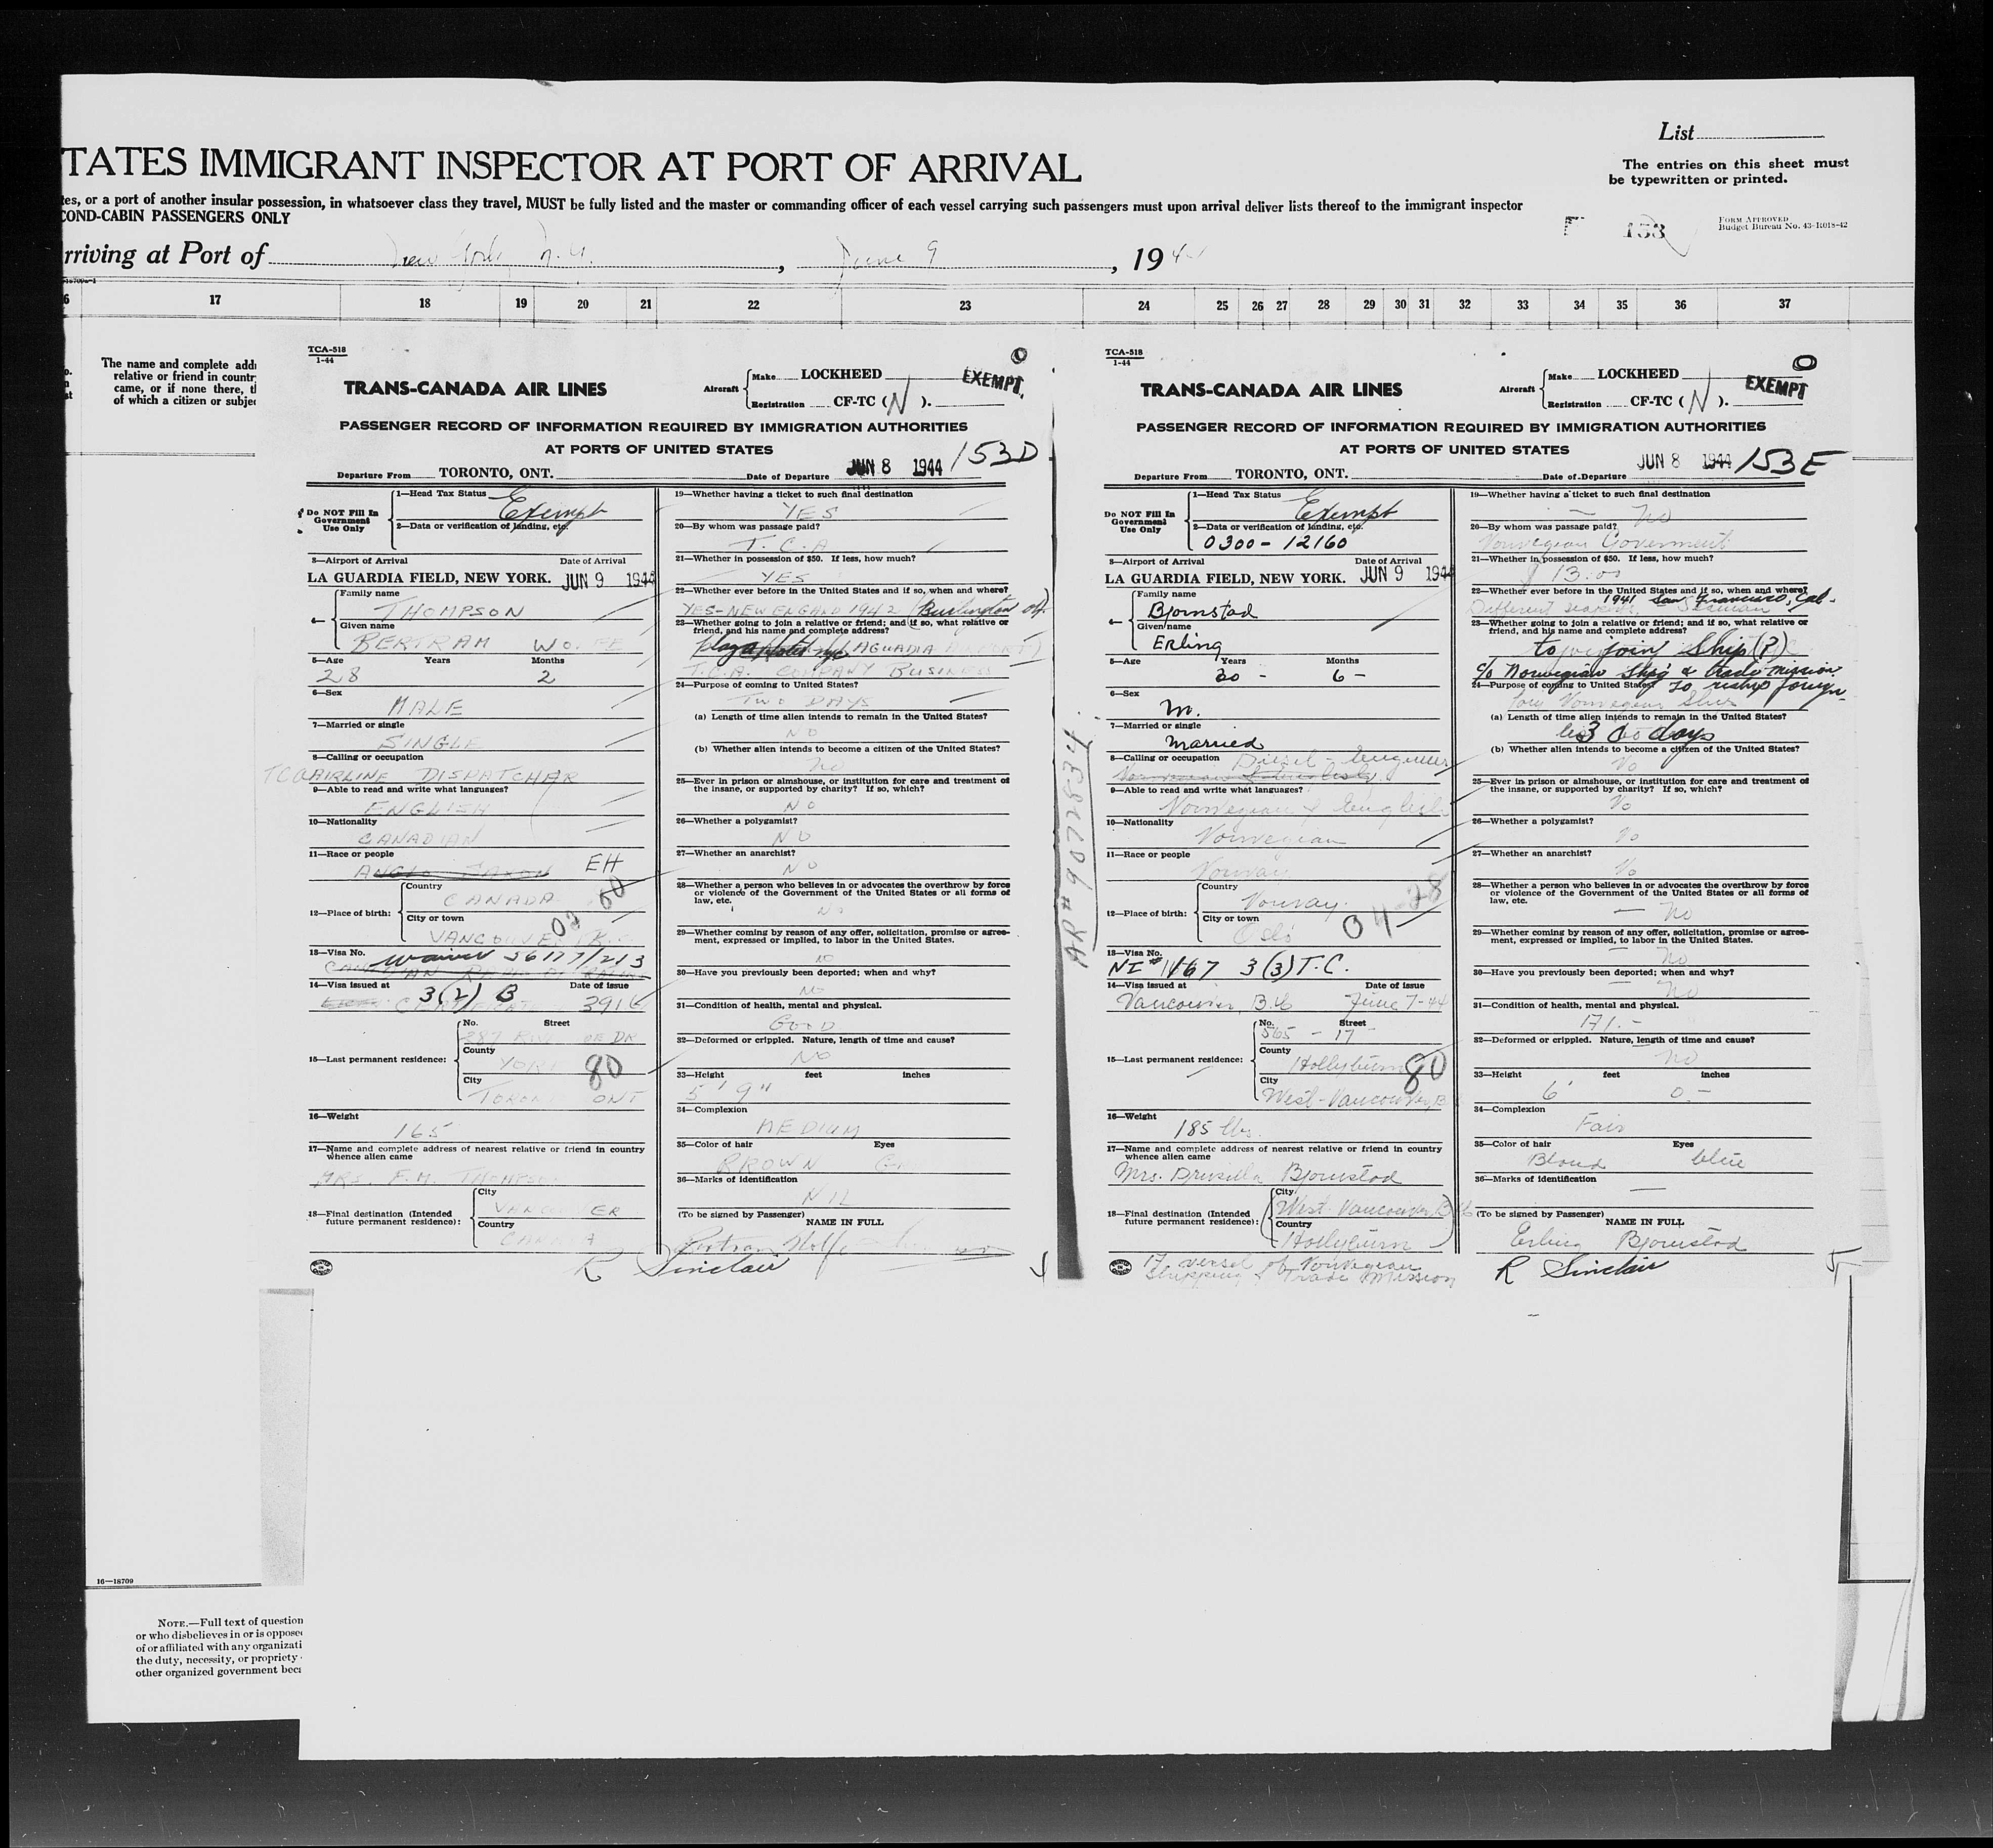 List
TATES IMMIGRANT INSPECTOR AT PORT OF ARRIVAL
The entries on this sheet must
be typewritten or printed.
tes, or a port of another insular possession, in whatsoever class they travel, MUST be fully listed and the master or commanding officer of each vessel carrying such passengers must upon arrival deliver lists thereof to the immigrant inspector
COND-CABIN PASSENGERS ONLY
153
Form Approved
Budget Bureau No. 43-R018-42
rriving at Port of New York, N.Y., June 9, 194
6 17 18 19 20 21 22 23 24 25 26 27 28 29 30 31 32 33 34 35 36 37
The name and complete addr
relative or friend in country
came, or if none there, t
of which a citizen or subjec
TCA-518
1-44
O
TRANS-CANADA AIR LINES
Aircraft
Make LOCKHEED
EXEMPT.
Registration CF-TC (N).
PASSENGER RECORD OF INFORMATION REQUIRED BY IMMIGRATION AUTHORITIES
AT PORTS OF UNITED STATES
153D
Departure From TORONTO, ONT. Date of Departure JUN 8 1944
Do NOT Fill In
Government
Use Only
1—Head Tax Status Exempt
2—Data or verification of landing, etc.
3—Airport of Arrival Date of Arrival
LA GUARDIA FIELD, NEW YORK. JUN 9 1944
4—
Family name
THOMPSON
Given name
BERTRAM WO FE
5—Age Years Months
28 2
6—Sex
MALE
7—Married or single
SINGLE
8—Calling or occupation
TCA AIRLINE DISPATCHAR
9—Able to read and write what languages?
ENGLISH
10—Nationality
CANADIAN
11—Race or people
ANGLO SAXON EH
12—Place of birth:
Country
CANADA
City or town
VANCOUVER B.C.
02 60
13—Visa No.
waiver 56177/213
14—Visa issued at Date of issue
3(2) B 3916
15—Last permanent residence:
No. Street
287 DR
County
YORK
City
TORONTO ONT
80
16—Weight
165
17—Name and complete address of nearest relative or friend in country
whence alien came
MRS. F.M. THOMPSON
18—Final destination (Intended
future permanent residence):
City
VANCOUVER
Country
CANADA
19—Whether having a ticket to such final destination
YES
20—By whom was passage paid?
T.C.A
21—Whether in possession of $50. If less, how much?
YES
22—Whether ever before in the United States and if so, when and where?
YES-NEW ENGAND 1942 (Burlington
23—Whether going to join a relative or friend; and if so, what relative or
friend, and his name and complete address?
AGUADIA AIRPORT)
T.C.A. COMPANY BUSINESS
24—Purpose of coming to United States?
TWO DAYS
(a) Length of time alien intends to remain in the United States?
NO
(b) Whether alien intends to become a citizen of the United States?
No
25—Ever in prison or almshouse, or institution for care and treatment of
the insane, or supported by charity? If so, which?
NO
26—Whether a polygamist?
NO
27—Whether an anarchist?
NO
28—Whether a person who believes in or advocates the overthrow by force
or violence of the Government of the United States or all forms of
law, etc.
NO
29—Whether coming by reason of any offer, solicitation, promise or agree-
ment, expressed or implied, to labor in the United States.
NO
30—Have you previously been deported; when and why?
NO
31—Condition of health, mental and physical.
GOOD
32—Deformed or crippled. Nature, length of time and cause?
NO
33—Height feet inches
5' 9"
34—Complexion
MEDIUM
35—Color of hair Eyes
BROWN G.
36—Marks of identification
NIL
(To be signed by Passenger)
NAME IN FULL
Bertram Wolfe Thompson
R Sinclair
TCA-518
1-44
O
TRANS-CANADA AIR LINES
Aircraft
Make LOCKHEED
EXEMPT
Registration CF-TC (N).
PASSENGER RECORD OF INFORMATION REQUIRED BY IMMIGRATION AUTHORITIES
AT PORTS OF UNITED STATES
153E
Departure From TORONTO, ONT. Date of Departure JUN 8 1944
AR# 9072834
Do NOT Fill In
Government
Use Only
1—Head Tax Status Exempt
2—Data or verification of landing, etc.
0300-12160
3—Airport of Arrival Date of Arrival
LA GUARDIA FIELD, NEW YORK. JUN 9 1944
4—
Family name
Bjornstad
Given name
Erling
5—Age Years Months
30 - 6 -
6—Sex
m.
7—Married or single
Married
8—Calling or occupation Diesel-Engineer
9—Able to read and write what languages?
Norwegian & English
10—Nationality
Norwegian
11—Race or people
Norway
12—Place of birth:
Country
Norway.
City or town
Oslo
04-28
13—Visa No.
NI #1167 3(3) T.C.
14—Visa issued at Date of issue
Vancouver, B.C June 7-44
15—Last permanent residence:
No. Street
565 - 17
County
Hollyburn
City
West-Vancouver, B
80
16—Weight
185 lbs.
17—Name and complete address of nearest relative or friend in country
whence alien came
Mrs. Drusilla Bjornstad
18—Final destination (Intended
future permanent residence):
City
West-Vancouver, B.C
Country
Hollyburn
17 versel of Norwegian
Shipping & Trade Mission
19—Whether having a ticket to such final destination
— No
20—By whom was passage paid?
Norwegian Goverment
21—Whether in possession of $50. If less, how much?
$ 13.00
22—Whether ever before in the United States and if so, when and where?
1941 San Francisco, Cal.
Different Seaman
23—Whether going to join a relative or friend; and if so, what relative or
friend, and his name and complete address?
to join Ship (P)
c/o Norwegian Shpg & trade mission
24—Purpose of coming to United States? To reship foreign
(a) Length of time alien intends to remain in the United States?
30 days
(b) Whether alien intends to become a citizen of the United States?
No
25—Ever in prison or almshouse, or institution for care and treatment of
the insane, or supported by charity? If so, which?
No
26—Whether a polygamist?
No
27—Whether an anarchist?
No
28—Whether a person who believes in or advocates the overthrow by force
or violence of the Government of the United States or all forms of
law, etc.
— No
29—Whether coming by reason of any offer, solicitation, promise or agree-
ment, expressed or implied, to labor in the United States.
No
30—Have you previously been deported; when and why?
— No
31—Condition of health, mental and physical.
171.-
32—Deformed or crippled. Nature, length of time and cause?
No
33—Height feet inches
6' 0.-
34—Complexion
Fair
35—Color of hair Eyes
Blond blue
36—Marks of identification
—
(To be signed by Passenger)
NAME IN FULL
Erling Bjornstad
R Sinclair
16—18709
Note.—Full text of question
or who disbelieves in or is oppose
of or affiliated with any organizati
the duty, necessity, or propriety
other organized government beca